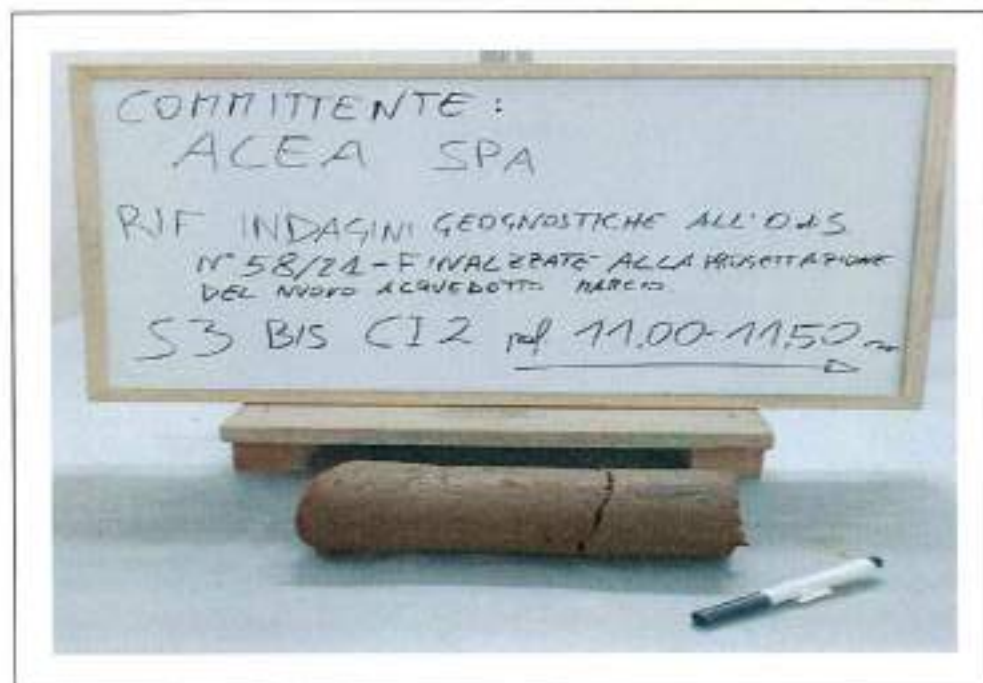 COMMITTENTE:
ACEA SPA
RIF INDAGINI GEOGNOSTICHE ALL'OdS
N° 58/21 - FINALZZATE ALLA PROGETTAZIONE
DEL NUOVO ACQUEDOTTO MARCIO
S3 BIS CI2 prof. 11.00-11.50 m